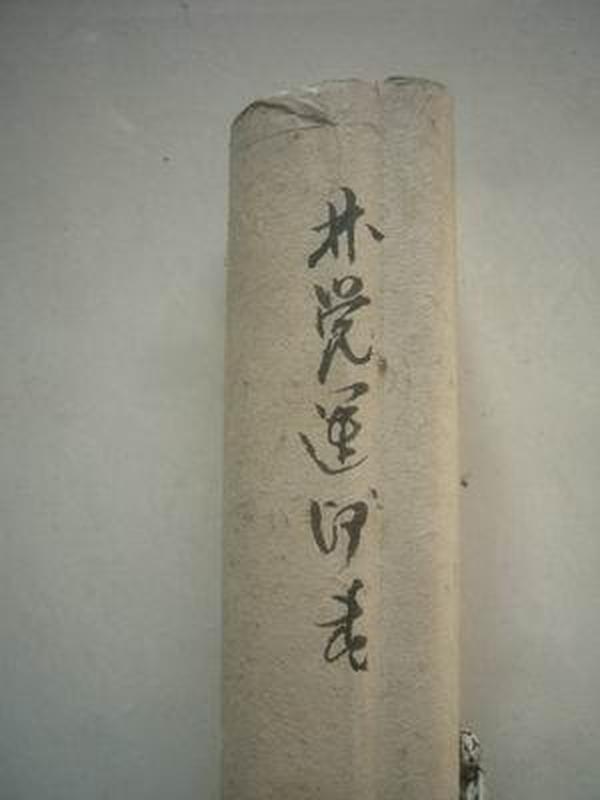 林覚運印巻